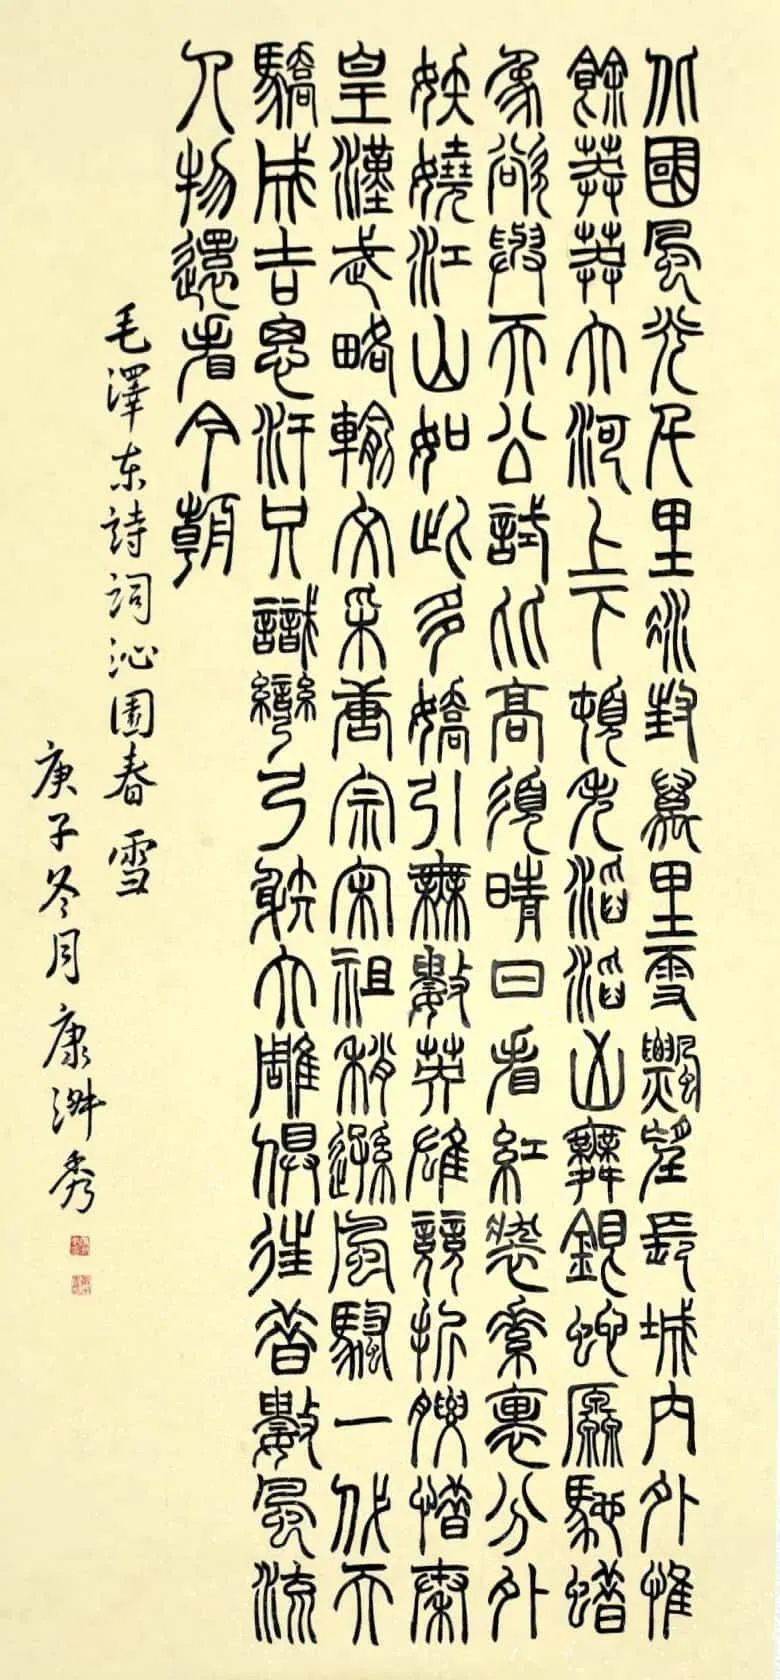 北國風光千里冰封萬里雪飄望長城內外惟
餘莽莽大河上下頓失滔滔山舞銀蛇原馳蠟
象欲與天公試比高須晴日看紅裝素裹分外
妖嬈江山如此多嬌引無數英雄競折腰惜秦
皇漢武略輸文采唐宗宋祖稍遜風騷一代天
驕成吉思汗只識彎弓射大雕俱往昔數風流
人物還看今朝
毛澤东詩詞沁園春雪
庚子冬月康秀